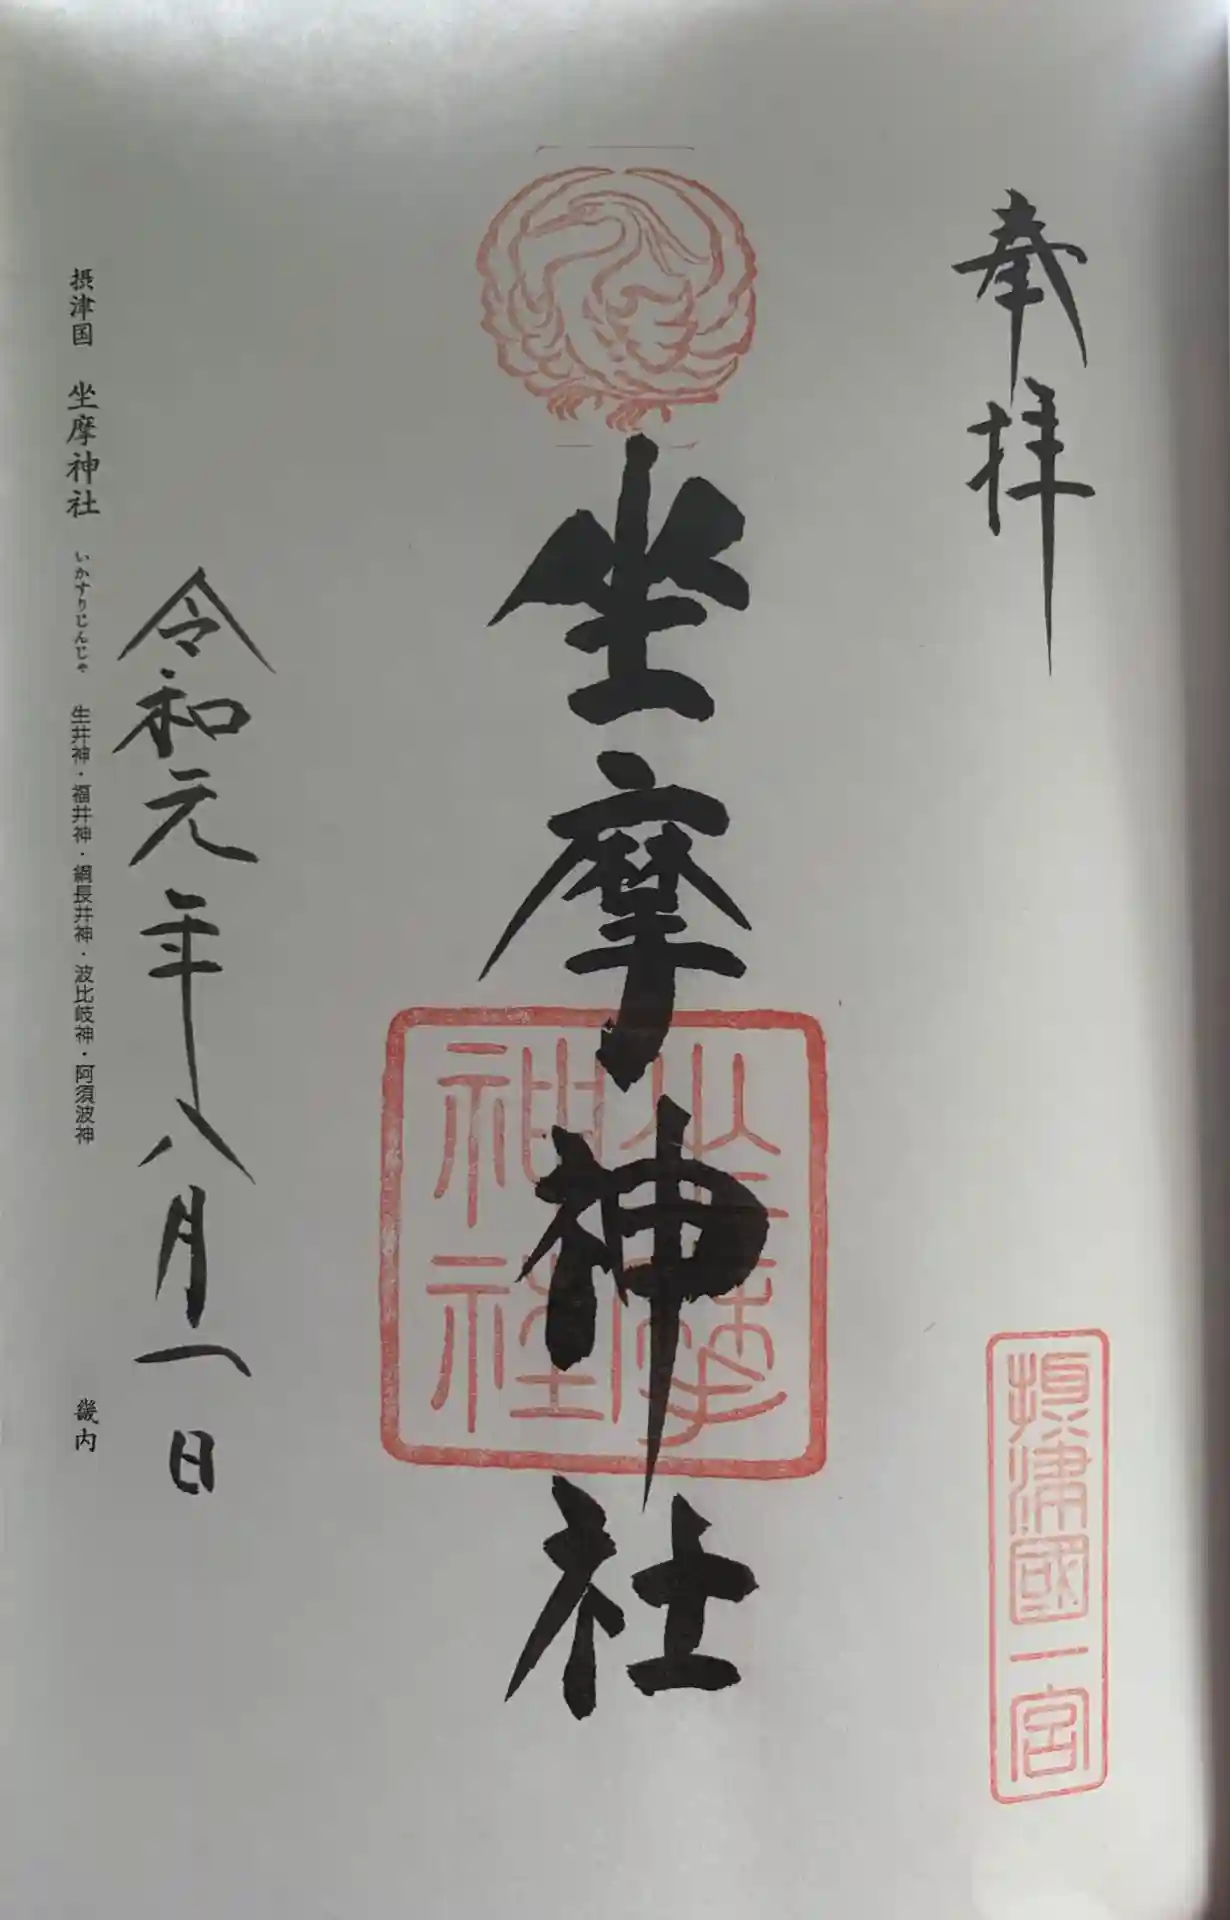 奉拝
摂津國一宮
坐摩神社
坐摩
神社
令和元年八月一日
摂津国 坐摩神社 いかすりじんじゃ 生井神・福井神・綱長井神・波比岐神・阿須波神 畿内